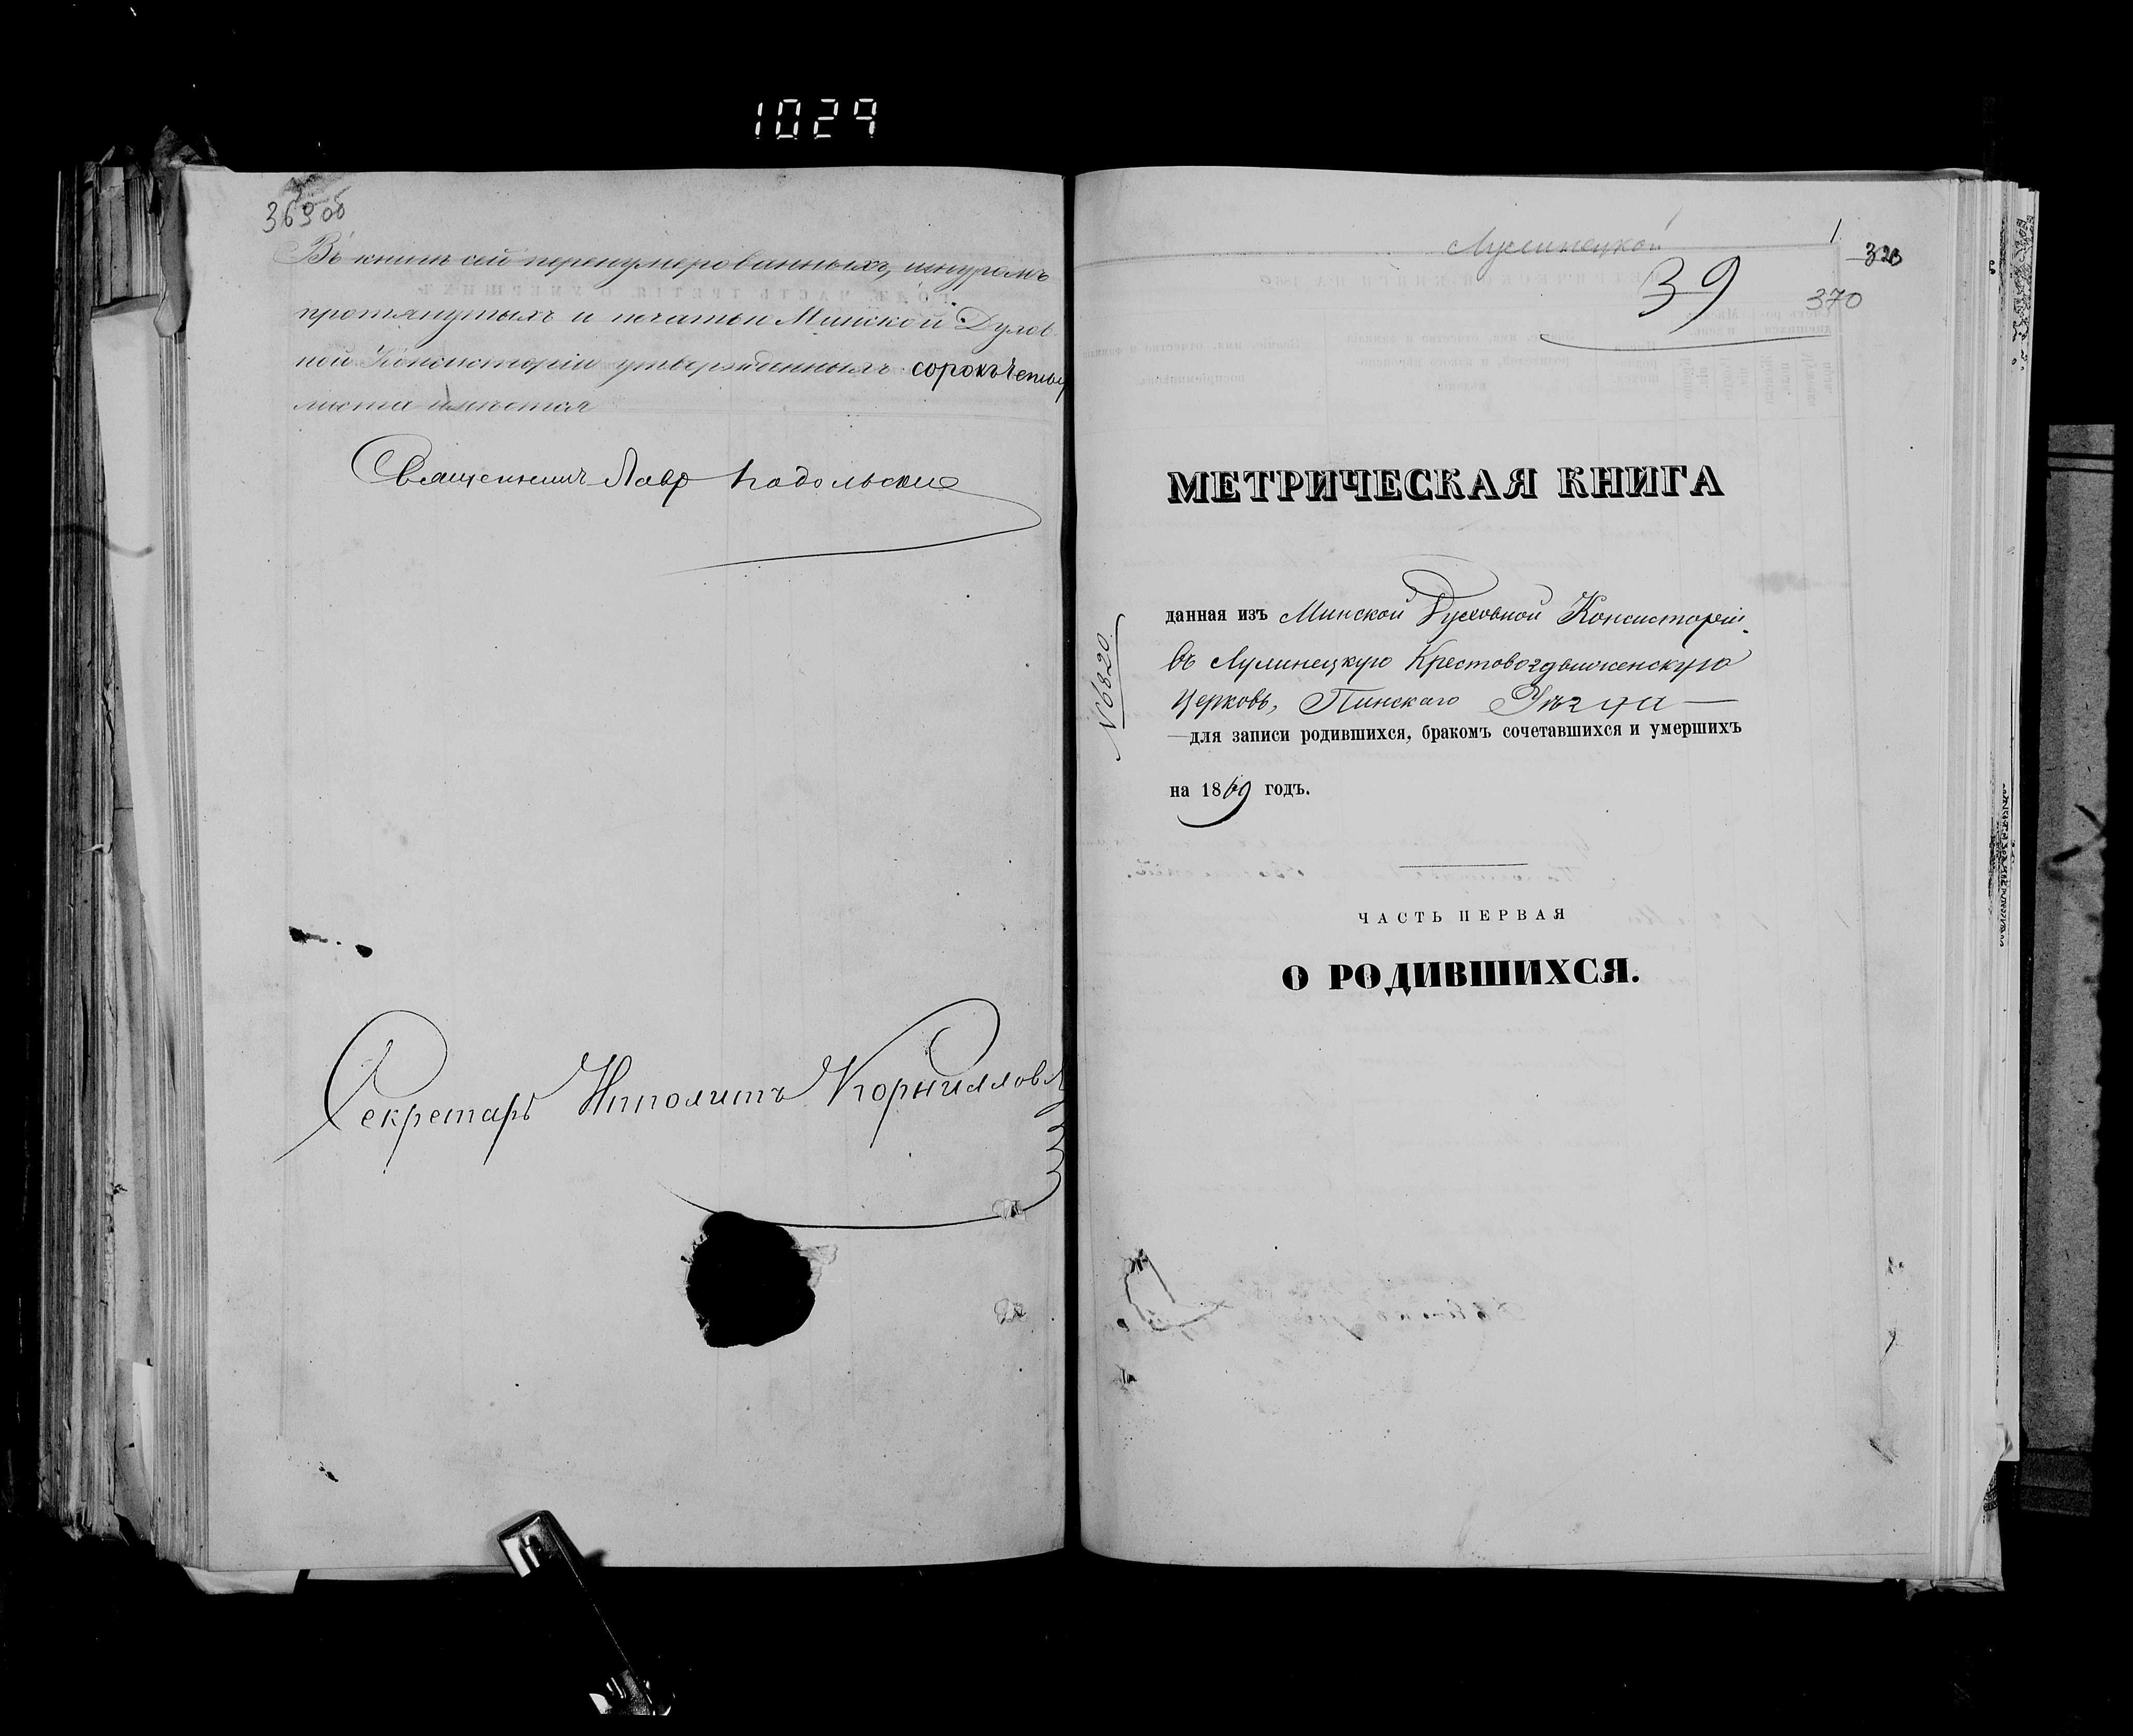 1029
369 об
Въ книгѣ сей перенумерованныхъ, шнуромъ
протянутыхъ и печатью Минской Духов
ной Консисторіи утвержденныхъ сорокъ четыр
листа имѣется
Священникъ Лавр Подольскій
Секретарь Ипполитъ Корниллов
Лулинецкой
1.
39
370
МЕТРИЧЕСКАЯ КНИГА
данная изъ Минской Духовной Консисторіи
въ Лулинецкую Крестовоздвиженскую
Церковь, Пинскаго Уѣзда —
— для записи родившихся, бракомъ сочетавшихся и умершихъ
на 1869 годъ.
№ 6820
ЧАСТЬ ПЕРВАЯ
О РОДИВШИХСЯ.